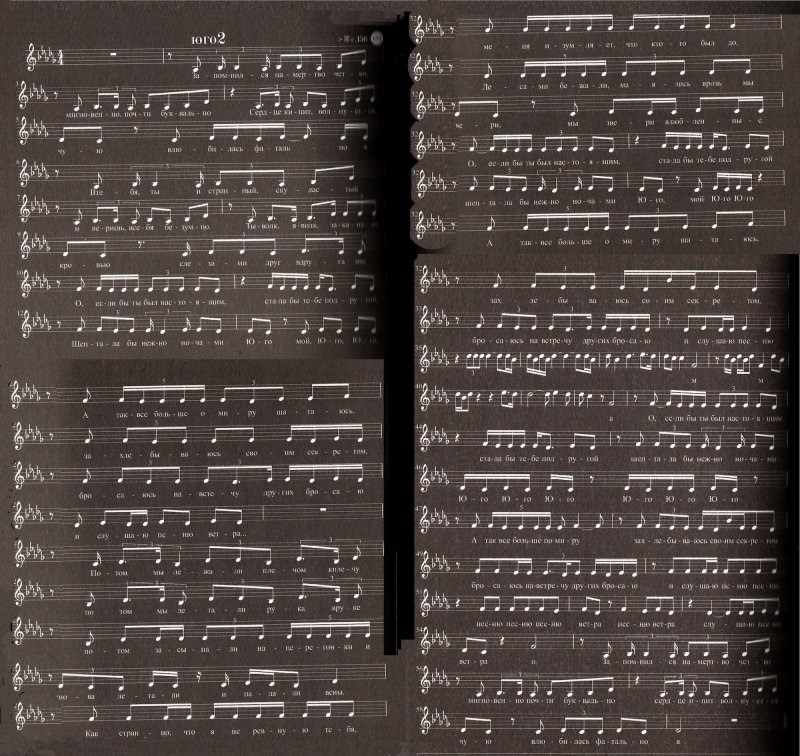 юго2
за - пом - нил - ся на - мер - тво чет - ко,
мгно - вен - но, поч - ти бук - валь - но Серд - це ки - пит, вол - ну - ет
чу - ю влю - би - лась фа - таль но я
В те - бя, ты и стран - ный, ску - лас тый
и ве - ришь, все - бя бе - зум - но. Ты - волк, я - волк,
кро - вью сле - за - ми друг вдру - га мы
О, ес - ли бы ты был нас - то - я - щим, ста - ла бы те - бе под - ру - гой,
Шеп - та - ла бы неж - но но - ча - ми Ю - го мой, Ю - го, Ю - го
А так - все боль - ше о ми - ру ша - та - юсь,
за - хле - бы - ва - юсь сво - им сек - ре - том,
бро - са - юсь на - встре - чу дру - гих бро - са - ю
и слу - ша - ю пе - ню вет - ра...
По - том мы ле - жа - ли пле - чом кпле - чу
по - том мы ле - та - ли ру - ка вру - ке
по - том за - сы - па - ли на - пе - ре - гон - ки и
чо - ва ле - та - ли и па - да - ли всны,
Как стран - но, что я не рев - ну - ю те - бя,
ме - ня и - зум - ля - ет, что кто - то был до.
Ле - са - ми бе - жа - ли, ма - я - лись врозь мы
зве - ри, мы зве - ри влюб - лен - ны - е.
О, ес - ли бы ты был нас - то - я - щим, ста - ла бы те - бе под - ру - гой
шеп - та - ла бы неж - но но - ча - ми Ю - го, мой Ю - го Ю - го
А так - все боль - ше о ми - ру ша - та - юсь,
зах - ле - бы - ва - юсь со - им сек - ре - том,
бро - са - юсь на встре - чу дру - гих бро - са - ю и слу - ша - ю пес - ню
м м
а О, ес - ли бы ты был нас - то - я - щим
ста - ла бы те - бе под - ру - гой шеп - та - ла бы неж - но но - ча - ми
Ю - го Ю - го Ю - го Ю - го Ю - го Ю - го
А так все боль - ше по ми - ру зах - ле - бы - ва - юсь сво - им сек - ре - том
бро - са - юсь на - встре - чу дру - гих бро - са - ю и слу - ша - ю пес - ню пес - ню
пес - ню пес - ню пес - ню вет - ра пес - ню вет - ра слу - ша - ю пес - ню
вет - ра о. За - пом - нил - ся на - мерт - во чет - ко
мгно - вен - но поч - ти бук - валь - но серд - це ки - пит вол - ну - ет
чу - ю влю - би - лась фа - таль - но я